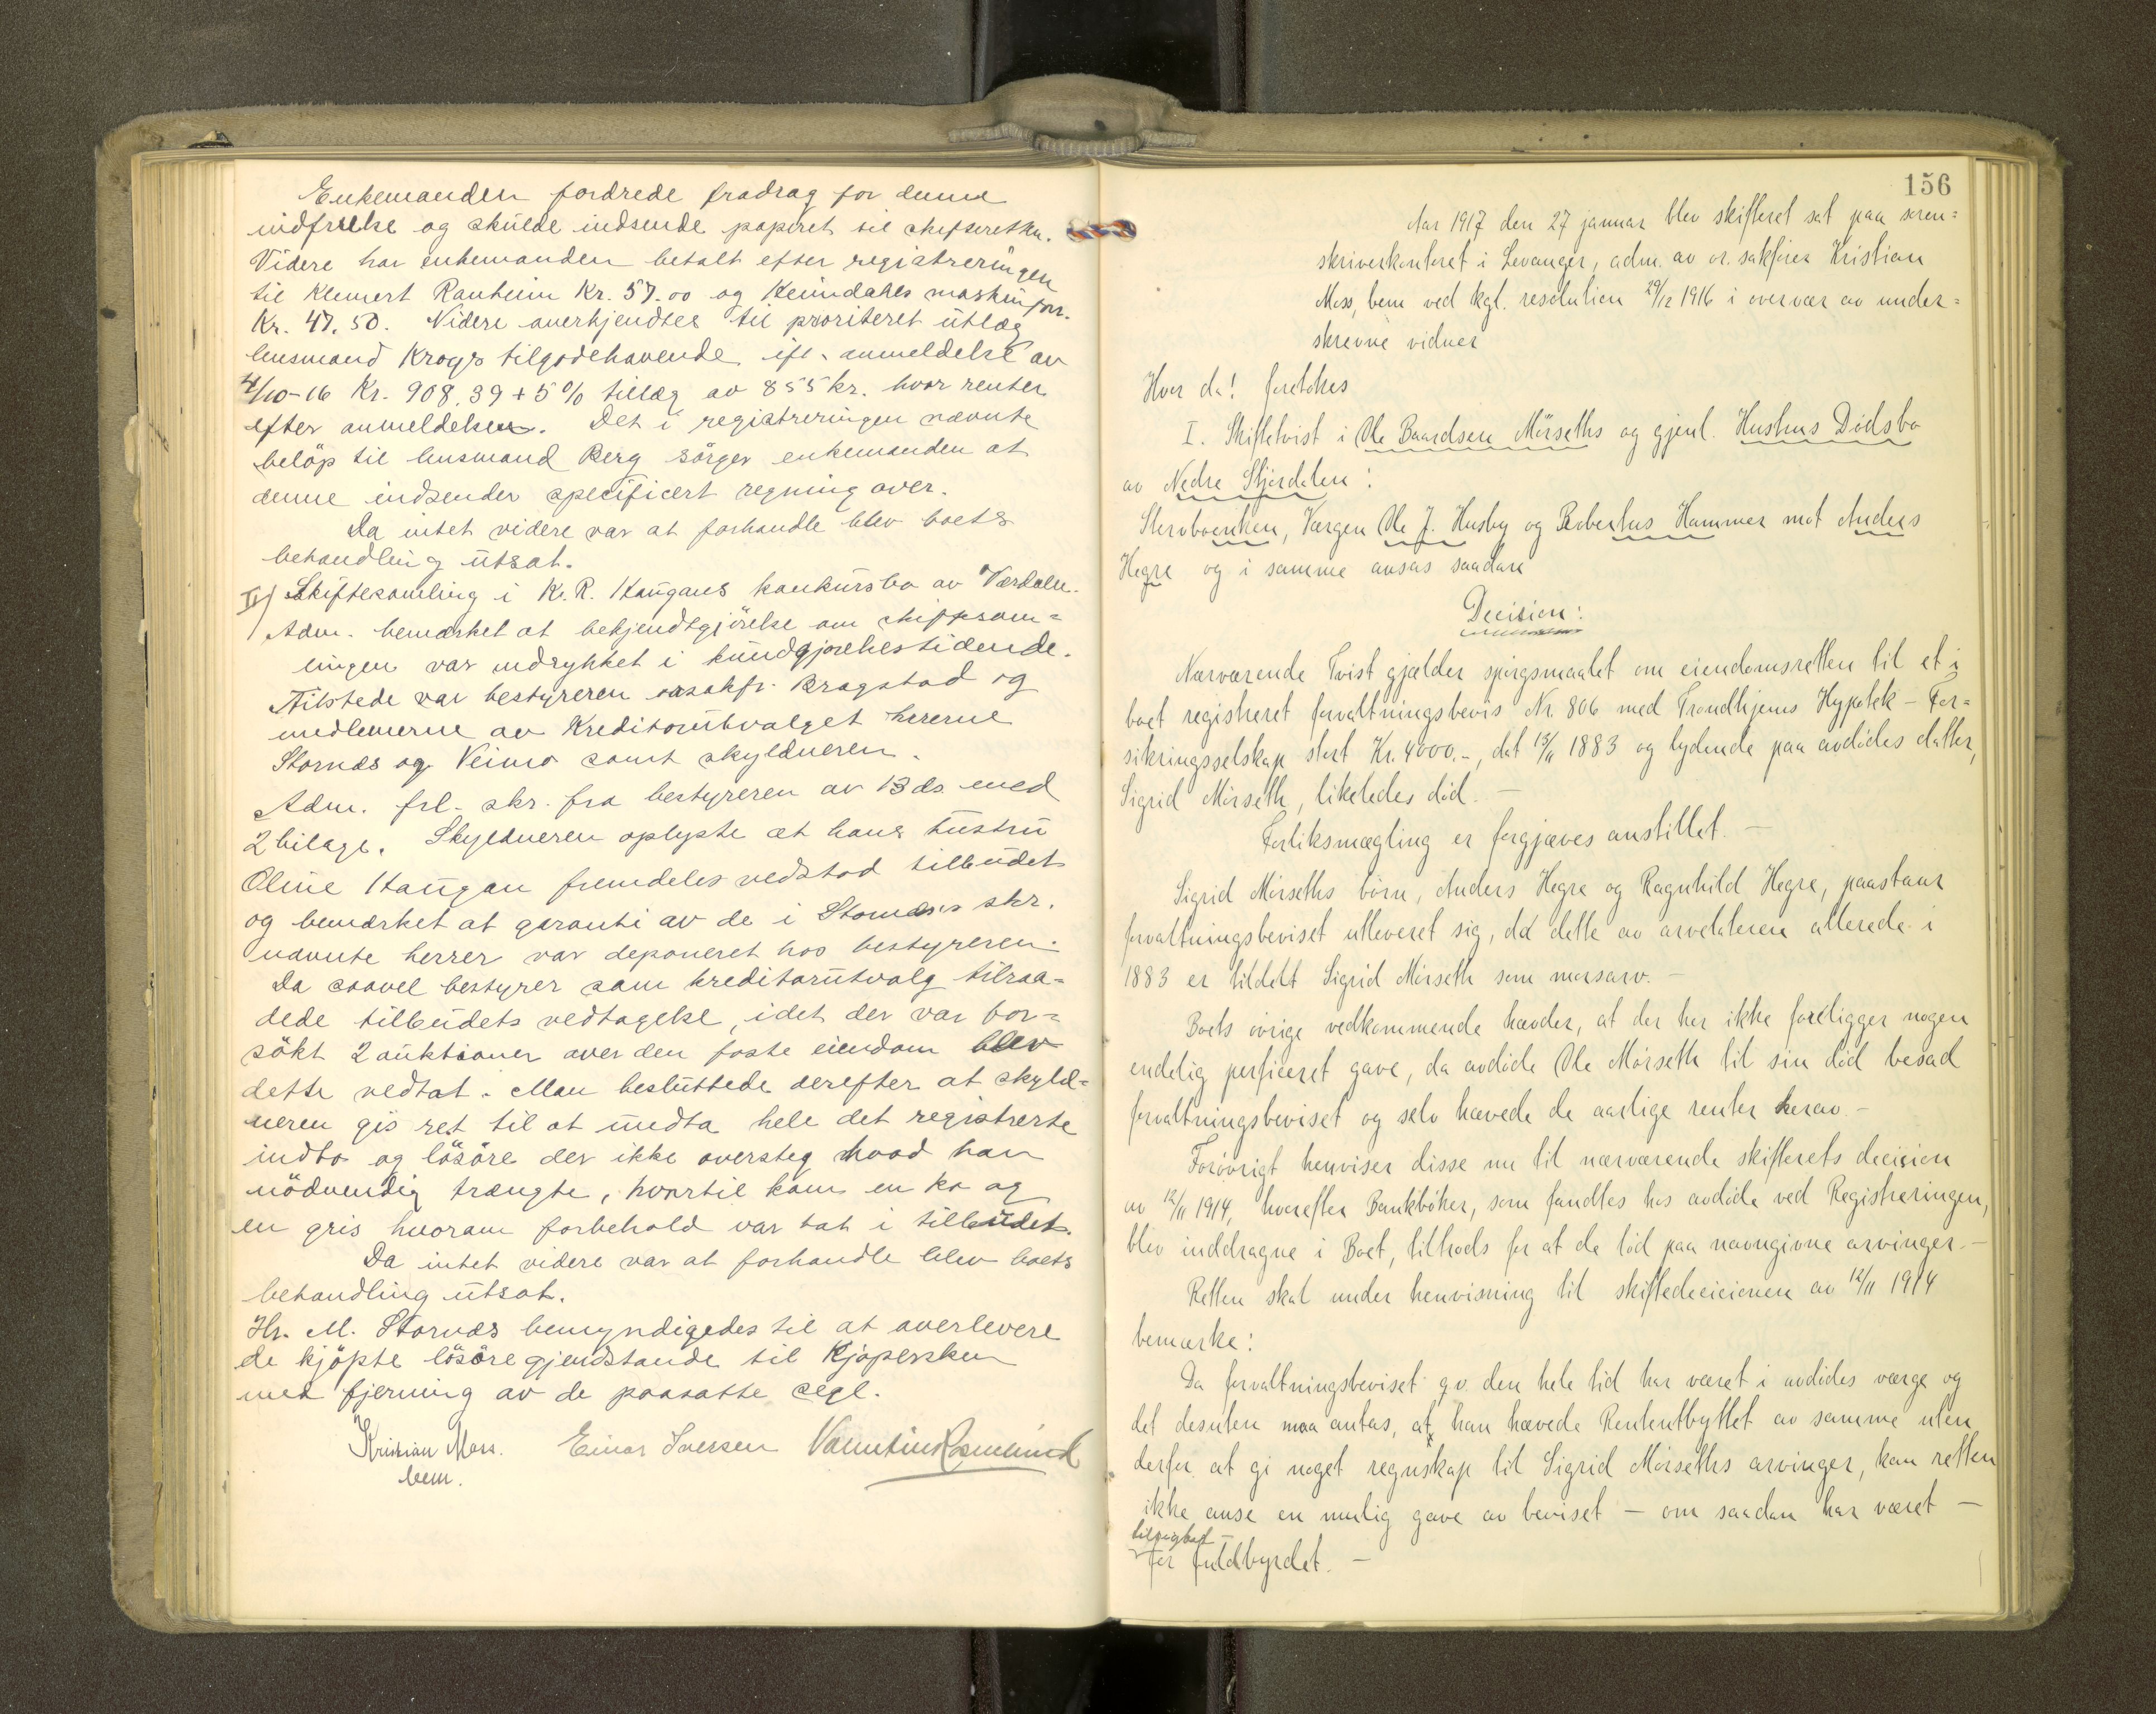 Enkemanden fordrede fradrag for denne
indfrielse og skulde indsende papiret til skifteretten.
Videre har enkemanden betalt efter registreringen
til Klemert Ranheim Kr. 57.00 og Keimdahls maskinforr.
Kr. 47.50. Videre anerkjendtes til prioritert utlæg
lensmand Krogs tilgodehavende ifl. anmeldelse av
4/10-16 Kr. 908,39 + 5% tillæg av 855 kr. hvor renter
efter anmeldelsen. Det i registreringen nævnte
beløp til lensmand Berg sörger enkemanden at
denne indsender specificert regning over.
Da intet videre var at forhandle blev boets
behandling utsat.
II) Skiftesamling i K. R. Haugans konkursbo av Værdalen.
Adm. bemærket at bekjendtgjörelse om skiftesam=
lingen var indrykket i kundgjörelsestidende.
Tilstede var bestyreren orsakfr. Bragstad og
medlemerne av Kreditorutvalget herrerne
Stornæs og Veimo samt skyldneren.
Adm. frl. skr. fra bestyreren av 13 ds. med
2 bilage. Skyldneren oplyste at hans hustru
Oline Haugan fremdeles vedstod tilbudet
og bemærket at garanti av de i Stornæs's skr.
nævnte herrer var deponeret hos bestyreren.
Da saavel bestyrer som kreditorutvalg tilraa-
dede tilbudets vedtagelse, idet der var for-
sökt 2 auktioner over den faste eiendom blev
dette vedtat. Man besluttede derefter at skyld=
neren gis ret til at undta hele det registrerte
indbo og lösöre der ikke oversteg hvad han
nödvendig trængte, hvortil kom en ko og
en gris hvorom forbehold var tat i tilbudet.
Da intet videre var at forhandle blev boets
behandling utsat.
Hr. M. Stornæs bemyndigedes til at overlevere
de kjöpte lösöregjendstande til Kjöpersken
med fjerning av de paasatte segl.
Kristian Moss. Einar Iversen Valentin Rosmund
bem.
156
Aar 1917 den 27 januar blev skifteret sat paa soren=
skriverkontoret i Levanger, adm. av or. sakfører Kristian
Moss, bem ved kgl. resolution 29/12 1916 i overvær av under=
skrevne vidner
Hvor da! foretokes
I. Skiftetvist i Ole Baardsen Mörseths og gjenl. Hustrus Dödsbo
av Nedre Stjørdalen:
Stervboenken, Værgen Ole J. Husby og Robertus Hammer mot Anders
Hegre og i samme avsas saadan
Decision:
Nærværende Tvist gjælder spörgsmaalet om eiendomsretten til et i
boet registreret forvaltningsbevis Nr. 806 med Trondhjems Hypotek - For=
sikringsselskap stort Kr. 4000.-, dat 13/11 1883 og lydende paa avdödes datter,
Sigrid Mörseth, likeledes död. -
Forliksmægling er forgjæves anstillet. -
Sigrid Mörseths börn, Anders Hegre og Ragnhild Hegre, paastaar
forvaltningsbeviset utleveret sig, da dette av arveladeren allerede i
1883 er tildelt Sigrid Mörseth som morsarv. -
Boets övrige vedkommende hævder, at der her ikke foreligger nogen
endelig perficeret gave, da avdöde Ole Mörseth til sin död besad
forvaltningsbeviset og selv hævede de aarlige renter herav. -
Forövrigt henviser disse nu til nærværende skifterets decision
av 12/11 1914, hvorefter Bankböker, som fandtes hos avdöde ved Registreringen,
blev inddragne i Boet, tiltrods for at de löd paa navngivne arvinger. -
Retten skal under henvisning til skiftedecicionen av 12/11 1914
bemærke:
Da forvaltningsbeviset gv. den hele tid har været i avdödes værge og
det desuten maa antas, at han hævede Renteutbyttet av samme uten
derfor at gi noget regnskap til Sigrid Mörseths arvinger, kan retten
ikke anse en mulig gave av beviset - om saadan har været -
tilsigtet -
for fuldbyrdet. -